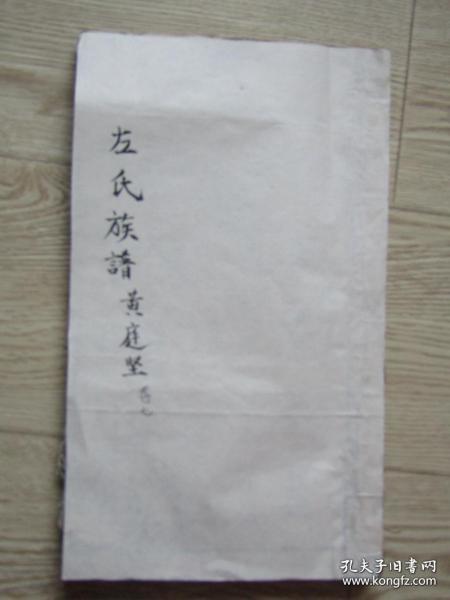 左氏族譜 黄庭坚
孔夫子旧书网
www.kongfz.com